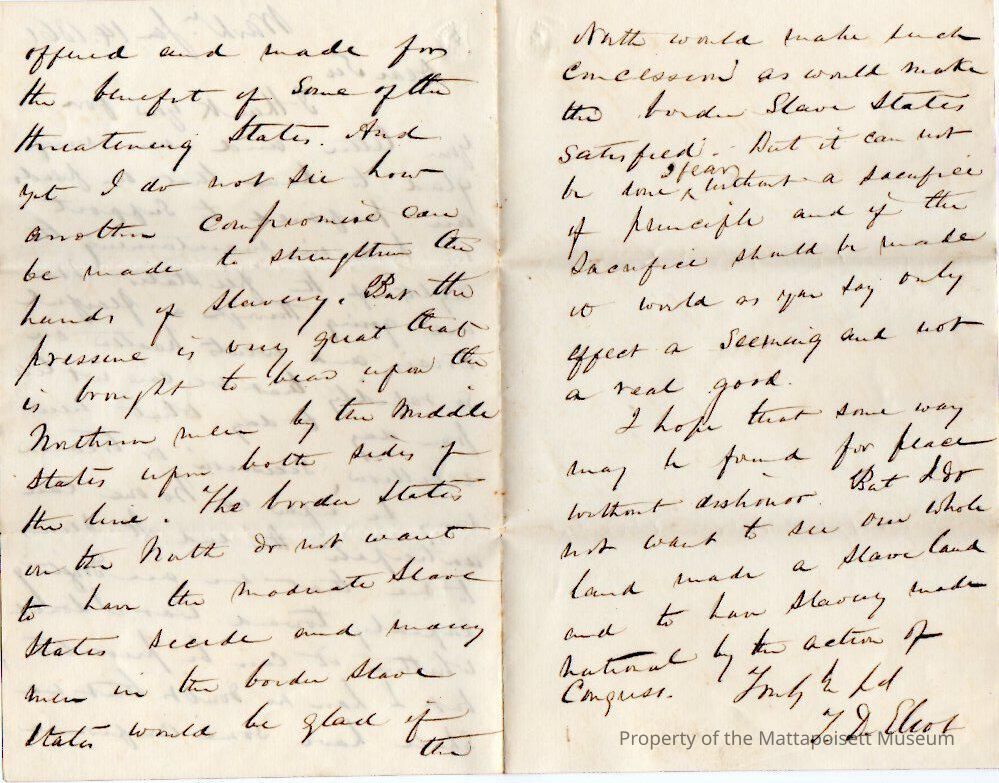 offered and made for
the benefit of some of the
threatening States. And
yet I do not see how
another compromise can
be made to strengthen the
hands of slavery. But the
pressure is very great that
is brought to bear upon the
Northern men by the Middle
States upon both sides of
the line. The border States
on the North do not want
to have the moderate Slave
States secede and many
men in the border slave
States would be glad if
the
North would make such
concession as would make
the border Slave States
satisfied. But it can not
be done I fear without a sacrifice
of principle and if the
sacrifice should be made
it would as you say only
effect a seeming and not
a real good.
I hope that some way
may be found for peace
without dishonor. But I do
not want to see our whole
land made a slave land
and to have slavery made
national by the action of
Congress. Truly
T D Eliot
Property of the Mattapoisett Museum